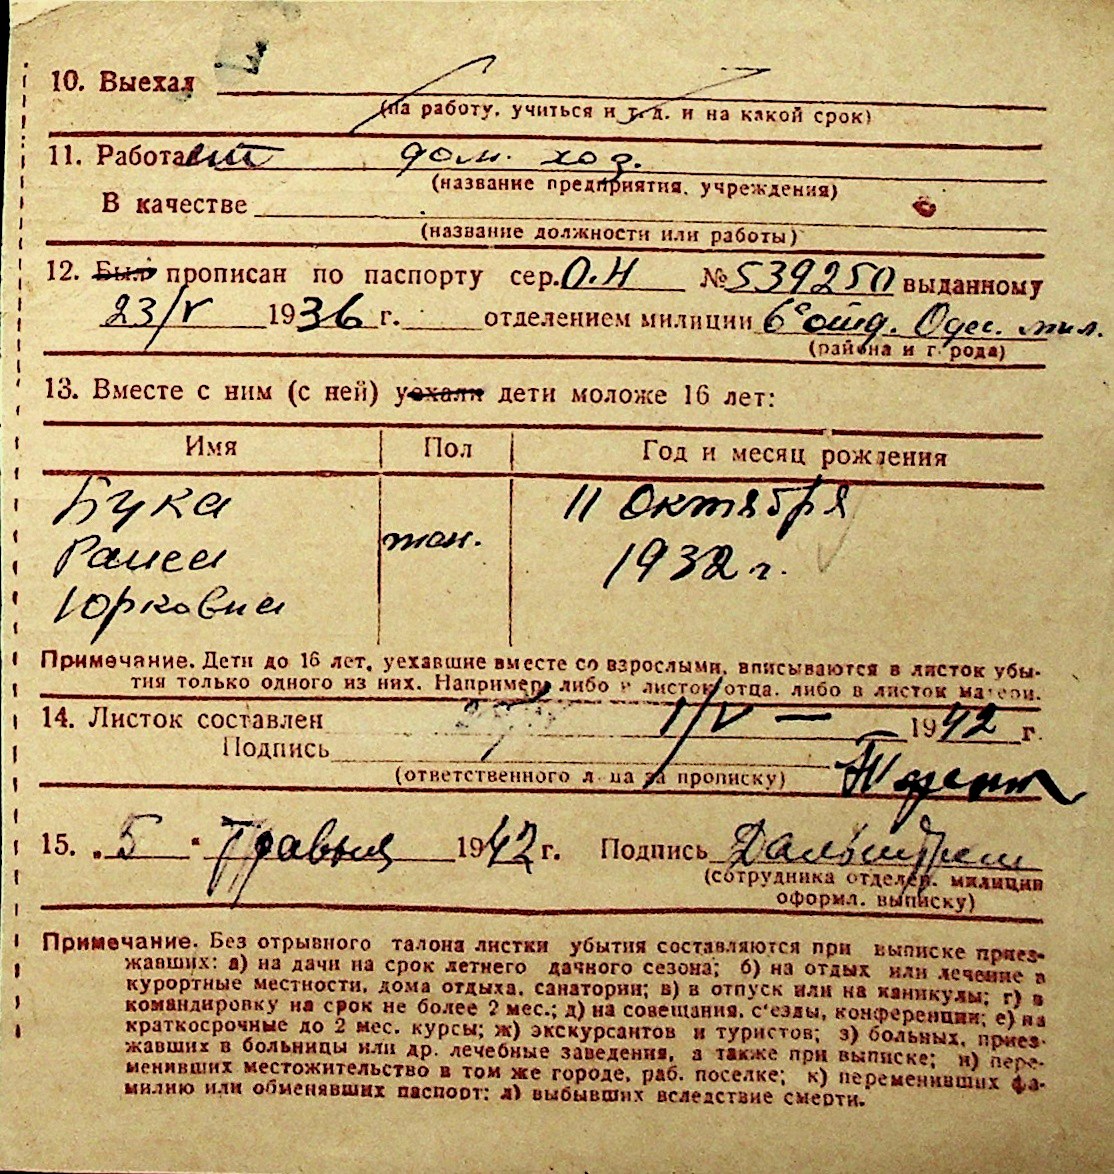 10. Выехал
(на работу, учиться и т. д. и на какой срок)
11. Работает дом. хоз.
(название предприятия, учреждения)
В качестве
(название должности или работы)
12. Был прописан по паспорту сер. О.Н № 539250 выданному
23/V 1936 г. отделением милиции 6е отд. Одес. мил.
(района и города)
13. Вместе с ним (с ней) уехали дети моложе 16 лет:
Имя Пол Год и месяц рождения
Бука
Раиса
Юрковна
жен.
11 Октября
1932 г.
Примечание. Дети до 16 лет, уехавшие вместе со взрослыми, вписываются в листок убы-
тия только одного из них. Например, либо в листок отца, либо в листок матери.
14. Листок составлен 1/V — 1942 г.
Подпись
(ответственного лица за прописку)
15. „5" Травня 1942 г. Подпись
(сотрудника отделен. милиции
оформл. выписку)
Примечание. Без отрывного талона листки убытия составляются при выписке приез-
жавших: а) на дачи на срок летнего дачного сезона; б) на отдых или лечение в
курортные местности, дома отдыха, санатории; в) в отпуск или на каникулы; г) в
командировку на срок не более 2 мес.; д) на совещания, с'езды, конференции; е) на
краткосрочные до 2 мес. курсы; ж) экскурсантов и туристов; з) больных, приез-
жавших в больницы или др. лечебные заведения, а также при выписке; и) пере-
менивших местожительство в том же городе, раб. поселке; к) переменивших фа-
милию или обменявших паспорт; л) выбывших вследствие смерти.